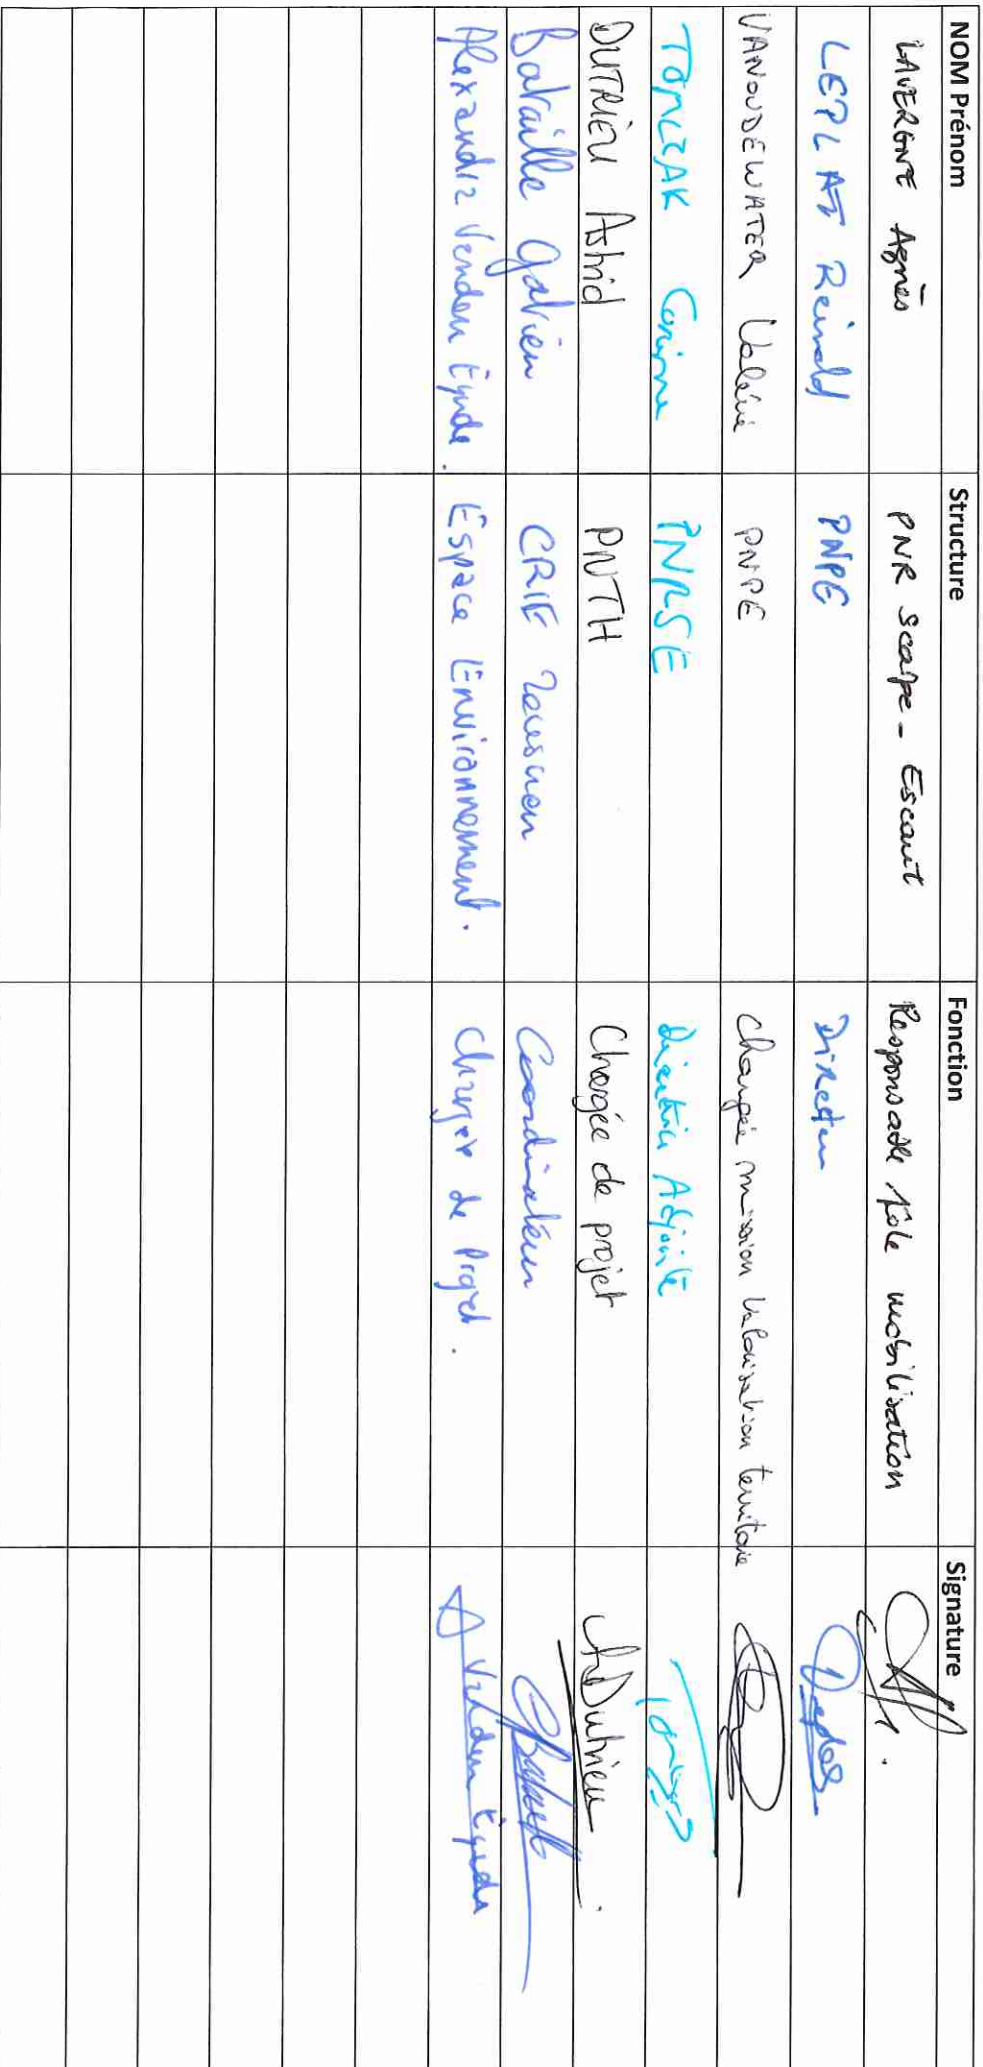 NOM Prénom Structure Fonction Signature
LAVERGNE Agnès PNR Scarpe - Escaut Responsable Pôle mobilisation
LEPLAT Reinold PNPE Directeur
VANOUDEWATER Valérie PNPE Chargée mission Valorisation territoire
TOMCZAK Corinne PNRSE Directrice Adjointe
DUTRIEU Astrid PNTH Chargée de projet ADutrieu.
Bataille Gabriên CRIE Coordinateur
Alexandra Vanden Eynde. Espace Environnement. Chargée de Projet. A Vanden Eynde